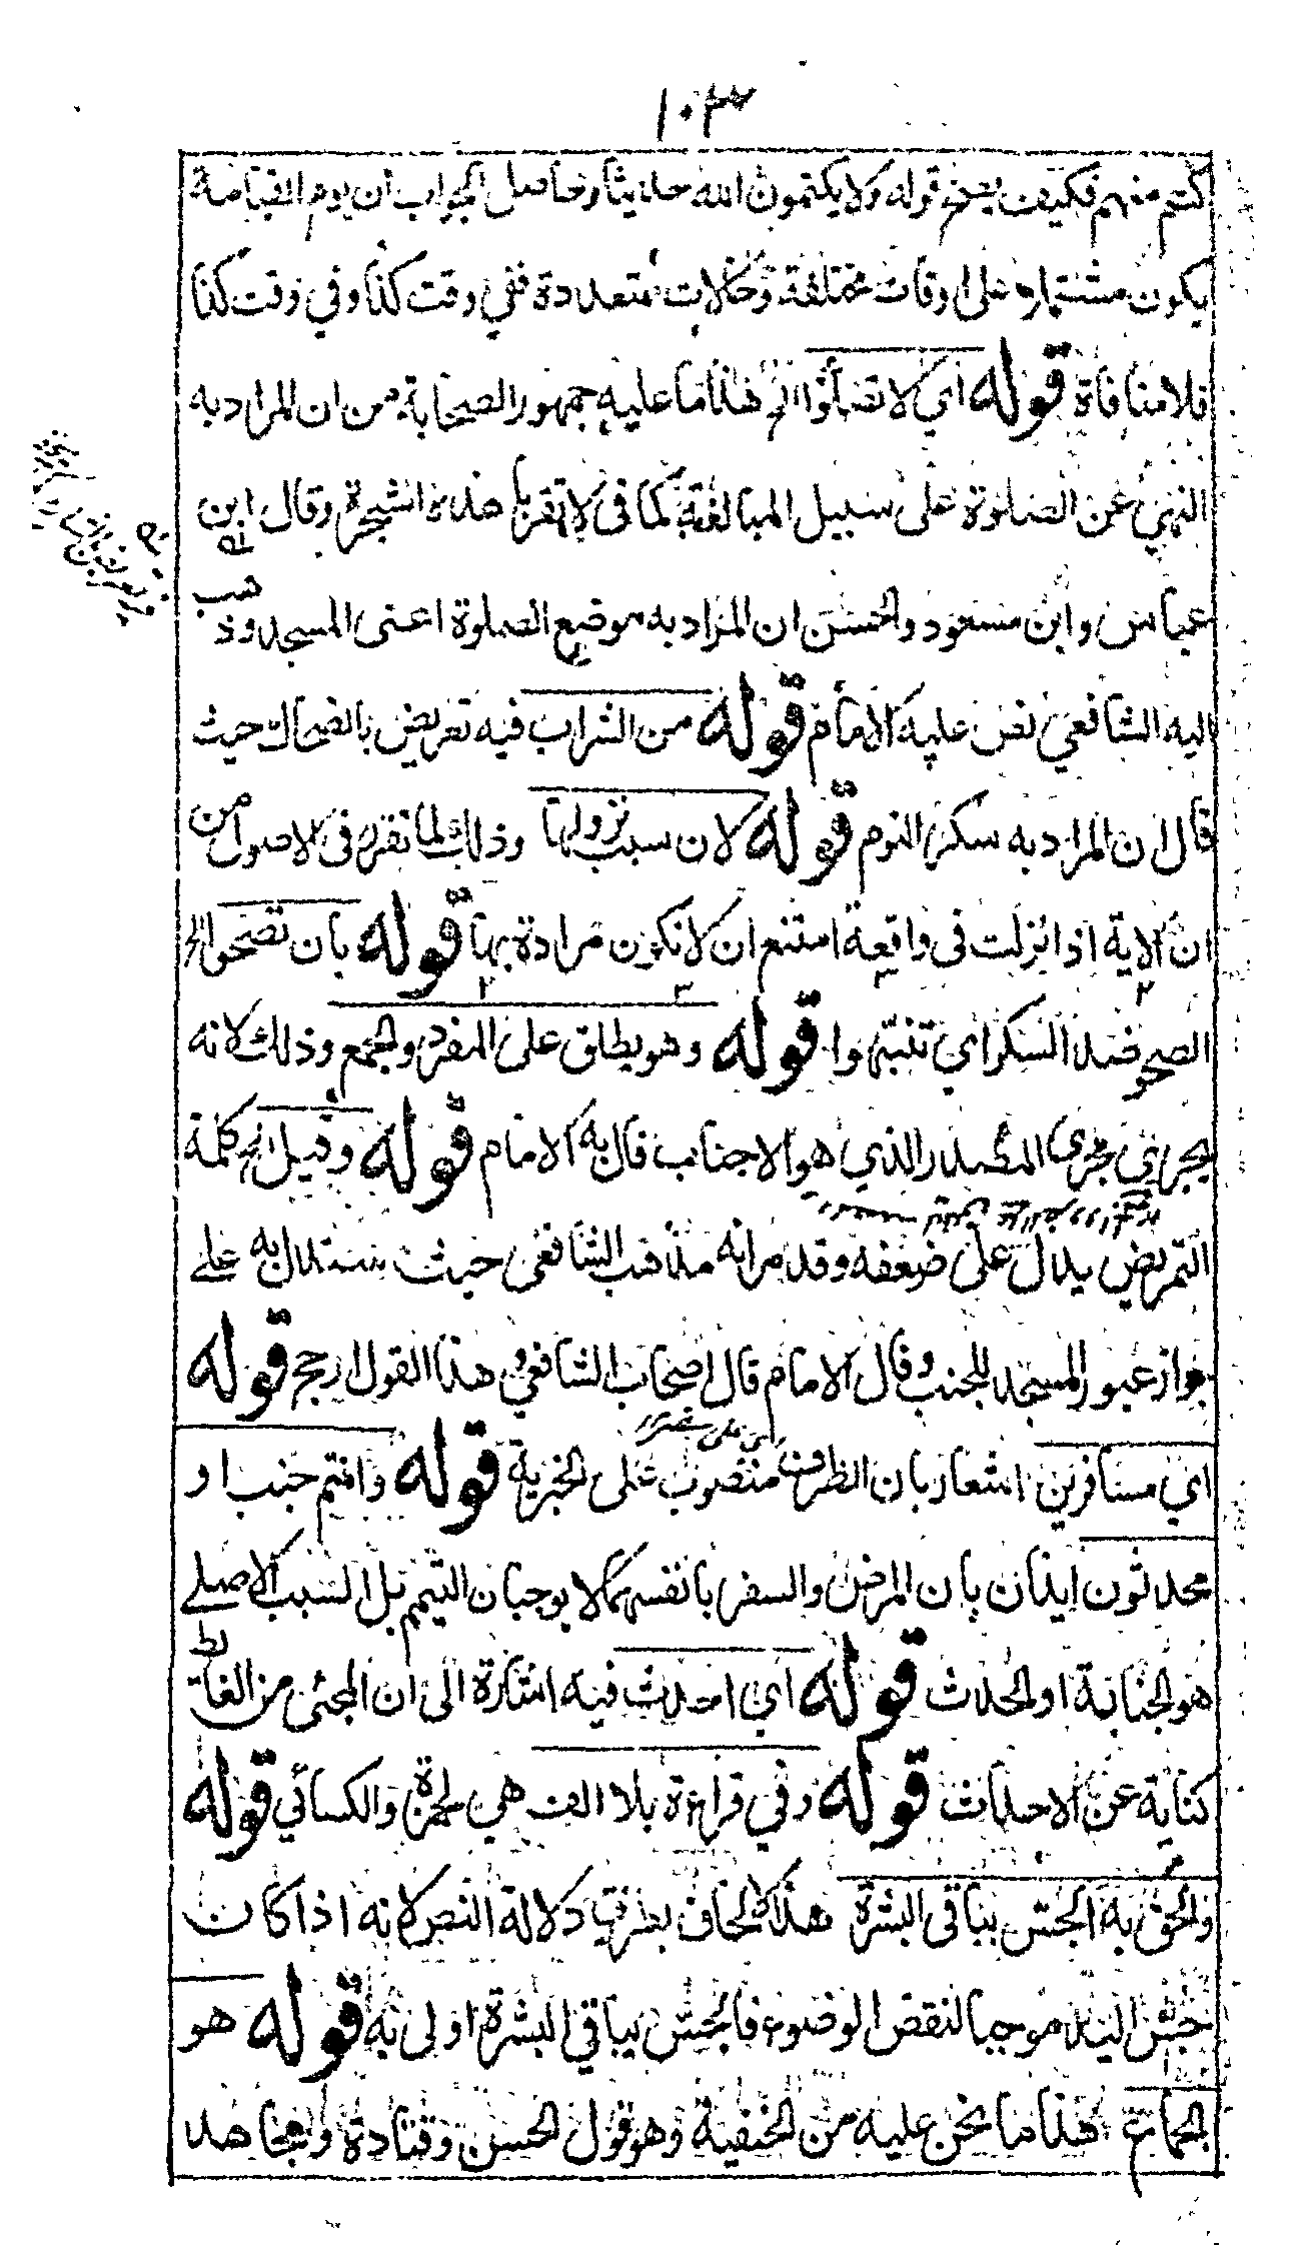 ١٠٣
كتم منهم فكيف يصح قوله ولا يكتمون الله حديثا وحاصل الجواب أن يوم القيامة
يكون مشتملا على اوقات مختلفة وحالات متعددة ففي وقت كذا وفي وقت كذا
فلا منافاة قوله اي لا تصلوا الخ هذا ما عليه جمهور الصحابة من ان المراد به
النهي عن الصلوة على سبيل المبالغة كما في لا تقربا هذه الشجرة وقال ابن
عباس وابن مسعود والحسن ان المراد به موضع الصلوة اعني المسجد وذهب
اليه الشافعي نص عليه الامام قوله من الشراب فيه تعريض بالضحاك حيث
قال ان المراد به سكر النوم قوله لان سبب نزولها وذلك لما تقرر في الاصول من
ان الاية اذا نزلت في واقعة امتنع ان لا تكون مرادة بها قوله بان تصحوا الخ
الصحو ضد السكر اي تنبهوا قوله وهو يطلق على المفرد والجمع وذلك لانه
يجري مجرى المصدر الذي هو الاجناب قال به الامام قوله وقيل الخ كلمة
التمريض يدل على ضعفه وقد مر انه مذهب الشافعي حيث يستدل به على
جواز عبور المسجد للجنب وقال الامام قال اصحاب الشافعي وهذا القول ارجح قوله
اي مسافرين اشعار بان الظرف منصوب على الخبرية قوله وانتم جنب او
محدثون ايذان بان المرض والسفر بانفسهما لا يوجبان التيمم بل السبب الاصلي
هو الجنابة او الحدث قوله اي احدث فيه اشارة الى ان المجئ من الغائط
كناية عن الاحداث قوله وفي قراءة بلا الف هي لحمزة والكسائي قوله
والحق به الجس بباقي البشرة هذا الحاق بطريق دلالة النص لانه اذا كان
جس اليد موجبا لنقض الوضوء فالجس بباقي البشرة اولى به قوله هو
الجماع هذا ما نحن عليه من الحنفية وهو قول الحسن وقتادة ومجاهد